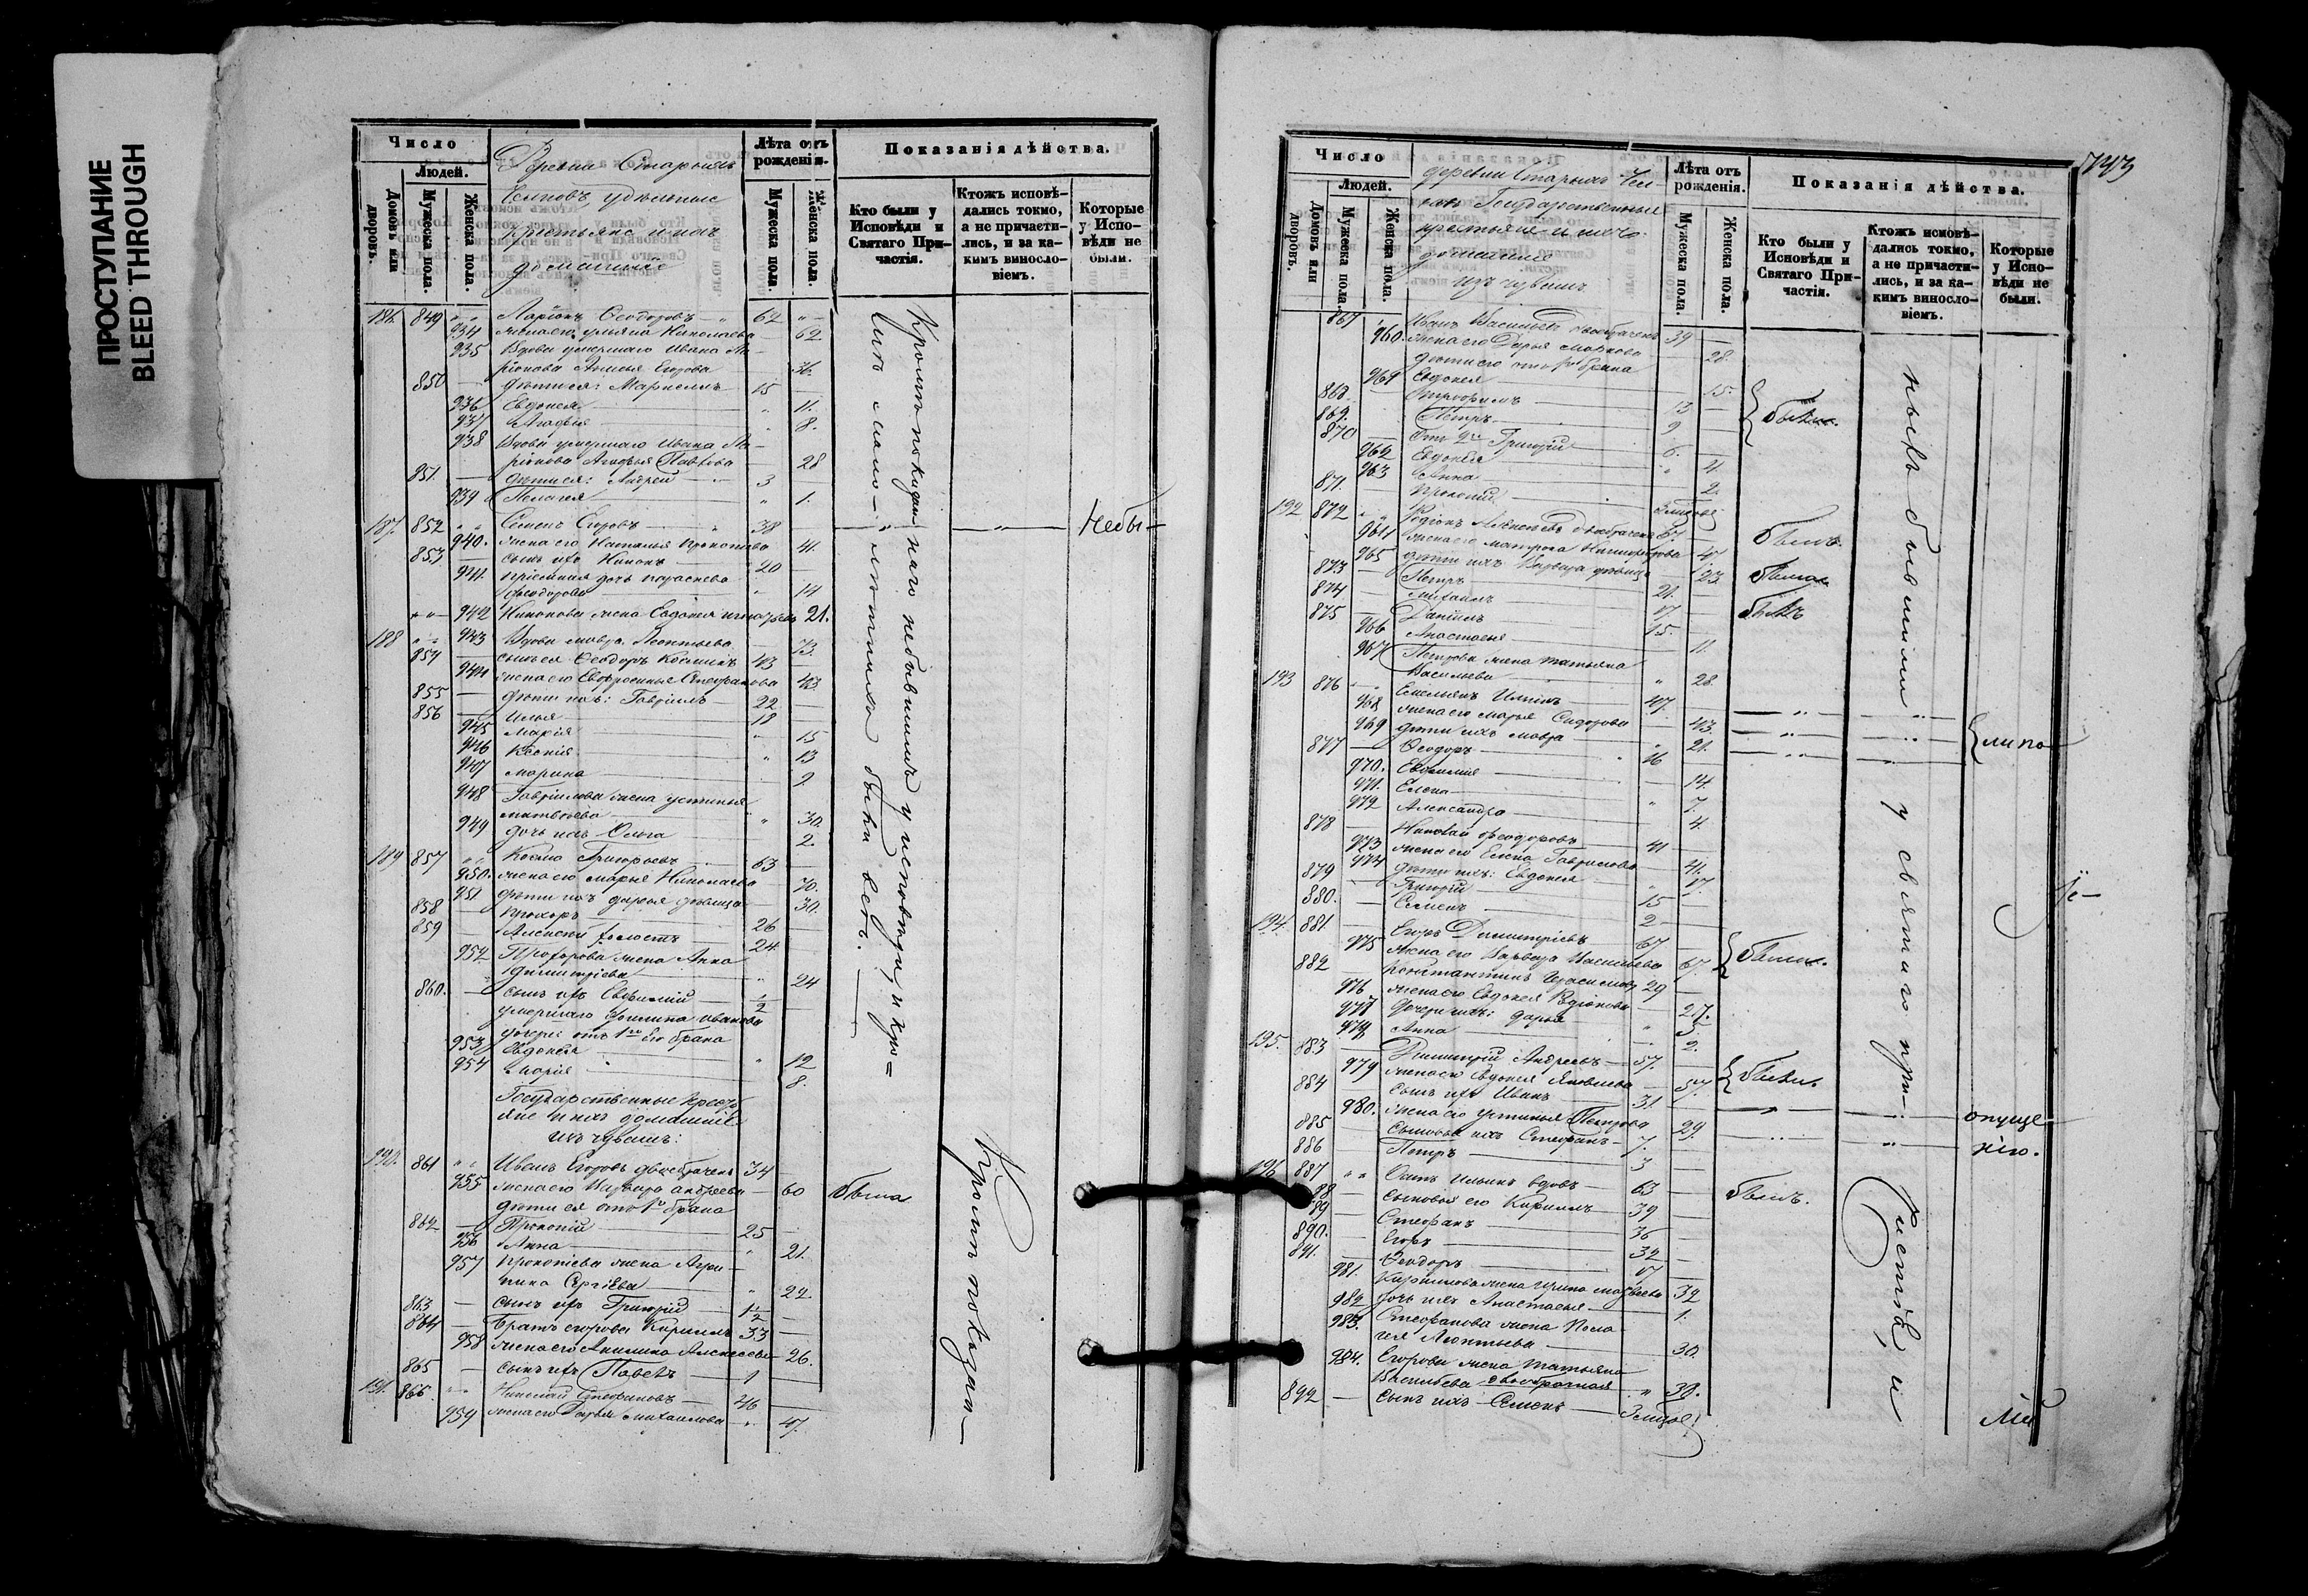 ПРОСТУПАНИЕ
BLEED THROUGH
Число
Людей.
Домовъ или дворовъ.
Мужеска пола.
Женска пола.
Деревни Старыхъ
удѣльные
крестьяне и ихъ
домашніе
Лѣта отъ рожденія.
Мужеска пола.
Женска пола.
Показанія дѣйства.
Кто были у Исповѣди и Святаго Причастія.
Ктожъ исповѣдались токмо, а не причастились, и за какимъ винословіемъ.
Которые у Исповѣди не были.
186 849 Ларіонъ Ѳеодоровъ 62
934 жена его Ульяна Николаева 62
935 Вдова умершаго Ивана Ла-
ріонова Анисья Егорова 36.
850 дѣти ея: 15
936 Евдокея 11.
937 Агафья 8.
938 Вдова умершаго Ивана Ла-
ріонова Агафья Павлова 28
851. дѣти ея: Андрей 3
939 Пелагея 1.
187. 852 Семенъ Егоровъ 38 Небы-
940. жена его Наталья Прокопьева 41.
853 сынъ ихъ Никонъ 20
941. пріемная дочь Параскева
Ѳеодорова 14
942 Никонова жена Евдокея 21.
188 943 Вдова Мавра Леонтьева 73.
854 сынъ ея Ѳеодоръ Косминъ 43
944 жена его Евфросинья Стефанова 43
855 дѣти ихъ: Гавріилъ 22
856 Илья 18
945 Марія 15
946 Ксенія 13
947 Марина 9.
948 Гавріилова жена Устинья
Матвѣева 30.
949 дочь ихъ Ольга 2.
189 857 Косма Григорьевъ 63
950. жена его Марья Николаева 70.
951 дѣти ихъ Дарья дѣвица 30.
858 Прохоръ 26
859 Алексѣй холостъ 24
952 Прохорова жена Анна
Димитріева 24
860. сынъ ихъ Евфимій 1/2
умершаго Филипа Иванова
дочери отъ 1го его брака
953 Евдокея 12
954 Марія 8.
Государственные кресть-
яне и ихъ домашніе
изъ чувашъ:
190. 861 Иванъ Егоровъ двоебраченъ 34
955 жена его Варвара Андреева 60 была
дѣти ея отъ 1го брака
862 Прокопій 25
956 Анна 21.
957 Прокопіева жена Агри-
пина Сергѣева 22
863 сынъ ихъ Григорій 1 1/2
864 Братъ Егорова Кириллъ 33
958 жена его Акилина Алексеева 26.
865 сынъ ихъ Павелъ 1
191. 866. Николай Стефановъ 46
959 жена его Дарья Михайлова 47.
Кромѣ показан-наго небывшимъ у исповѣди, и кро=
мѣ мало-лѣтнихъ были всѣ.
Кромѣ показан-
743
Число
Людей.
Домовъ или дворовъ.
Мужеска пола.
Женска пола.
деревни Старыхъ
Государственные
крестьяне и ихъ
домашніе
изъ чувашъ
Лѣта отъ рожденія.
Мужеска пола.
Женска пола.
Показанія дѣйства.
Кто были у Исповѣди и Святаго Причастія.
Ктожъ исповѣдались токмо, а не причастились, и за какимъ винословіемъ.
Которые у Исповѣди не были.
867 Иванъ Васильевъ двоебраченъ 39
960. жена его Дарья Маркова 28.
дѣти его отъ 1го брака
961 Евдокея 15.
868. Трофимъ 13
869. Петръ 9 были.
870 Отъ 2го Григорій 6.
962 Евдокея 4.
963 Анна 2.
871. Прокопій
192 872 Родіонъ Алексѣевъ двоебраченъ 67. былъ.
964 жена его Матрона Никифорова 47
965 дѣти ихъ Варвара дѣвица 23 была
873 Петръ 21.
874 Михаилъ 17 былъ
875 Даніилъ 15.
966 Анастасія 11.
967 Петрова жена Татьяна
Васильева 28.
193 876 Емельянъ Ильинъ 47.
968 жена его Марья Сидорова 43.
969 дѣти ихъ Мавра 21. ли по
877 Ѳеодоръ 16
970. Евфимія 14.
971. Елена 7.
972 Александра 4.
878 Николай Ѳеодоровъ 41
973 жена его Елена Гаврилова 41.
974 дѣти ихъ: Евдокея 17.
879 Григорій 15
880. Семенъ 2
194. 881. Егоръ Димитріевъ 67
975 жена его Варвара Васильева 67. были.
882 Константинъ Герасимовъ 29
976 жена его Евдокея Родіонова 27.
977 дочери ихъ: Дарья 5.
978 Анна 2.
195. 883 Димитрій Андреевъ 57.
979 жена его Евдокея Яковлева 57. были.
884 сынъ ихъ Иванъ 31.
980. жена его Устинья Петрова 29. опуще-
885 сыновья ихъ Стефанъ 7. нію.
886 Петръ 3
196 887 Осипъ Ильинъ вдовъ 63 былъ.
88 сыновья его Кириллъ 39
89 Стефанъ 36
890. Егоръ 32
891. Ѳеодоръ 17
981. Кирилова жена Ирина Матвѣева 32
982 дочь ихъ Анастасья 1.
983. Стефанова жена Пела-
гея Леонтьева 30.
984. Егорова жена Татьяна
Васильева двоебрачная 38.
892 сынъ ихъ Семенъ
ныхъ бывшими у святаго при-частія, и